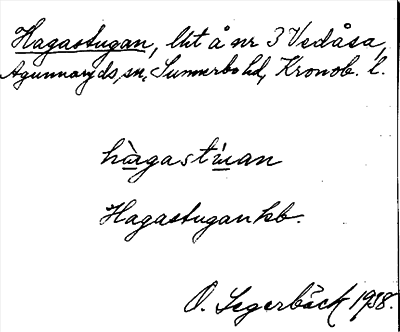 Hagastugan, lht å nr 3 Vedåsa,
Agunnaryds sn, Sunnerbo hd, Kronob. l.
hàgast'uan
Hagastugan kb.
O. Segerbäck 1938.